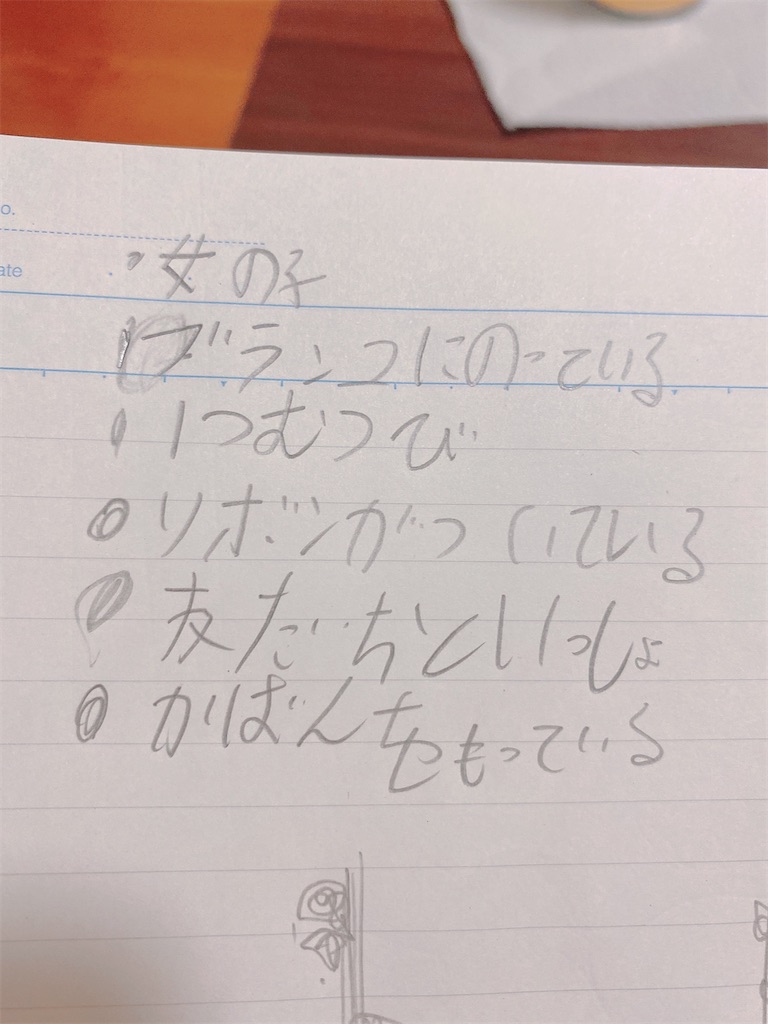 o.
ate
・女の子
・ブランコにのっている
・1つむつび
・リボンがついている
・友だちといっしょ
・かばんをもっている